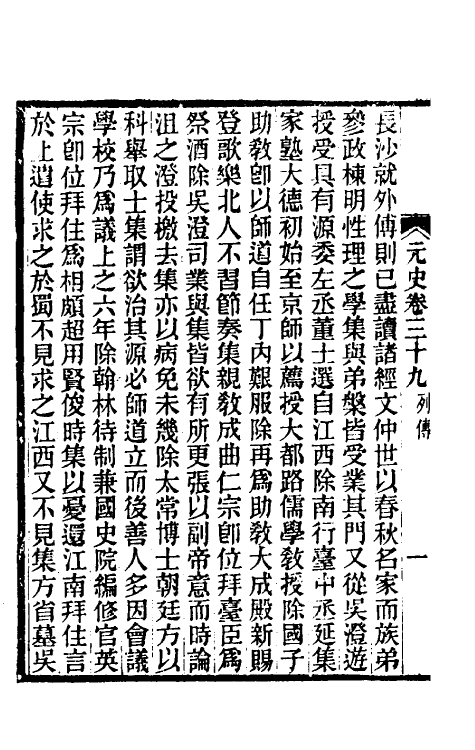 元史卷三十九 列傳 一
長沙就外傅則已盡讀諸經文仲世以春秋名家而族弟
參政棟明性理之學集與弟槃皆受業其門又從吳澄遊
授受具有源委左丞董士選自江西除南行臺中丞延集
家塾大德初始至京師以薦授大都路儒學教授除國子
助教卽以師道自任丁內艱服除再爲助教大成殿新賜
登歌樂北人不習節奏集親教成曲仁宗卽位拜臺臣爲
祭酒除吳澄司業與集皆欲有所更張以副帝意而時論
沮之澄投檄去集亦以病免未幾除太常博士朝廷方以
科舉取士集謂欲治其源必師道立而後善人多因會議
學校乃爲議上之六年除翰林待制兼國史院編修官英
宗卽位拜住爲相頗超用賢俊時集以憂還江南拜住言
於上遣使求之於蜀不見求之江西又不見集方省墓吳